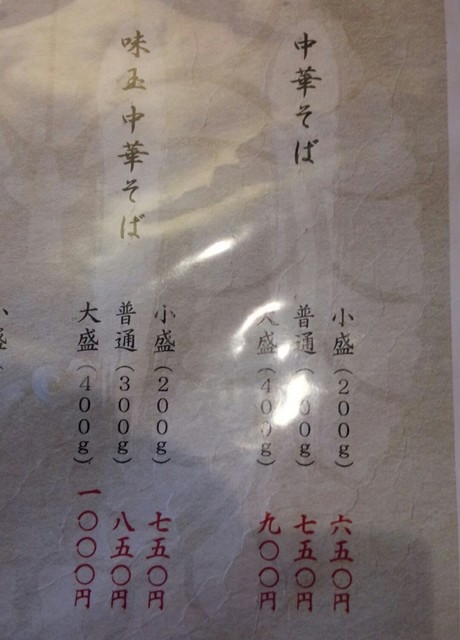 中華そば
小盛(200g) 六五〇円
普通(300g) 七五〇円
大盛(400g) 九〇〇円
味玉中華そば
小盛(200g) 七五〇円
普通(300g) 八五〇円
大盛(400g) 一〇〇〇円